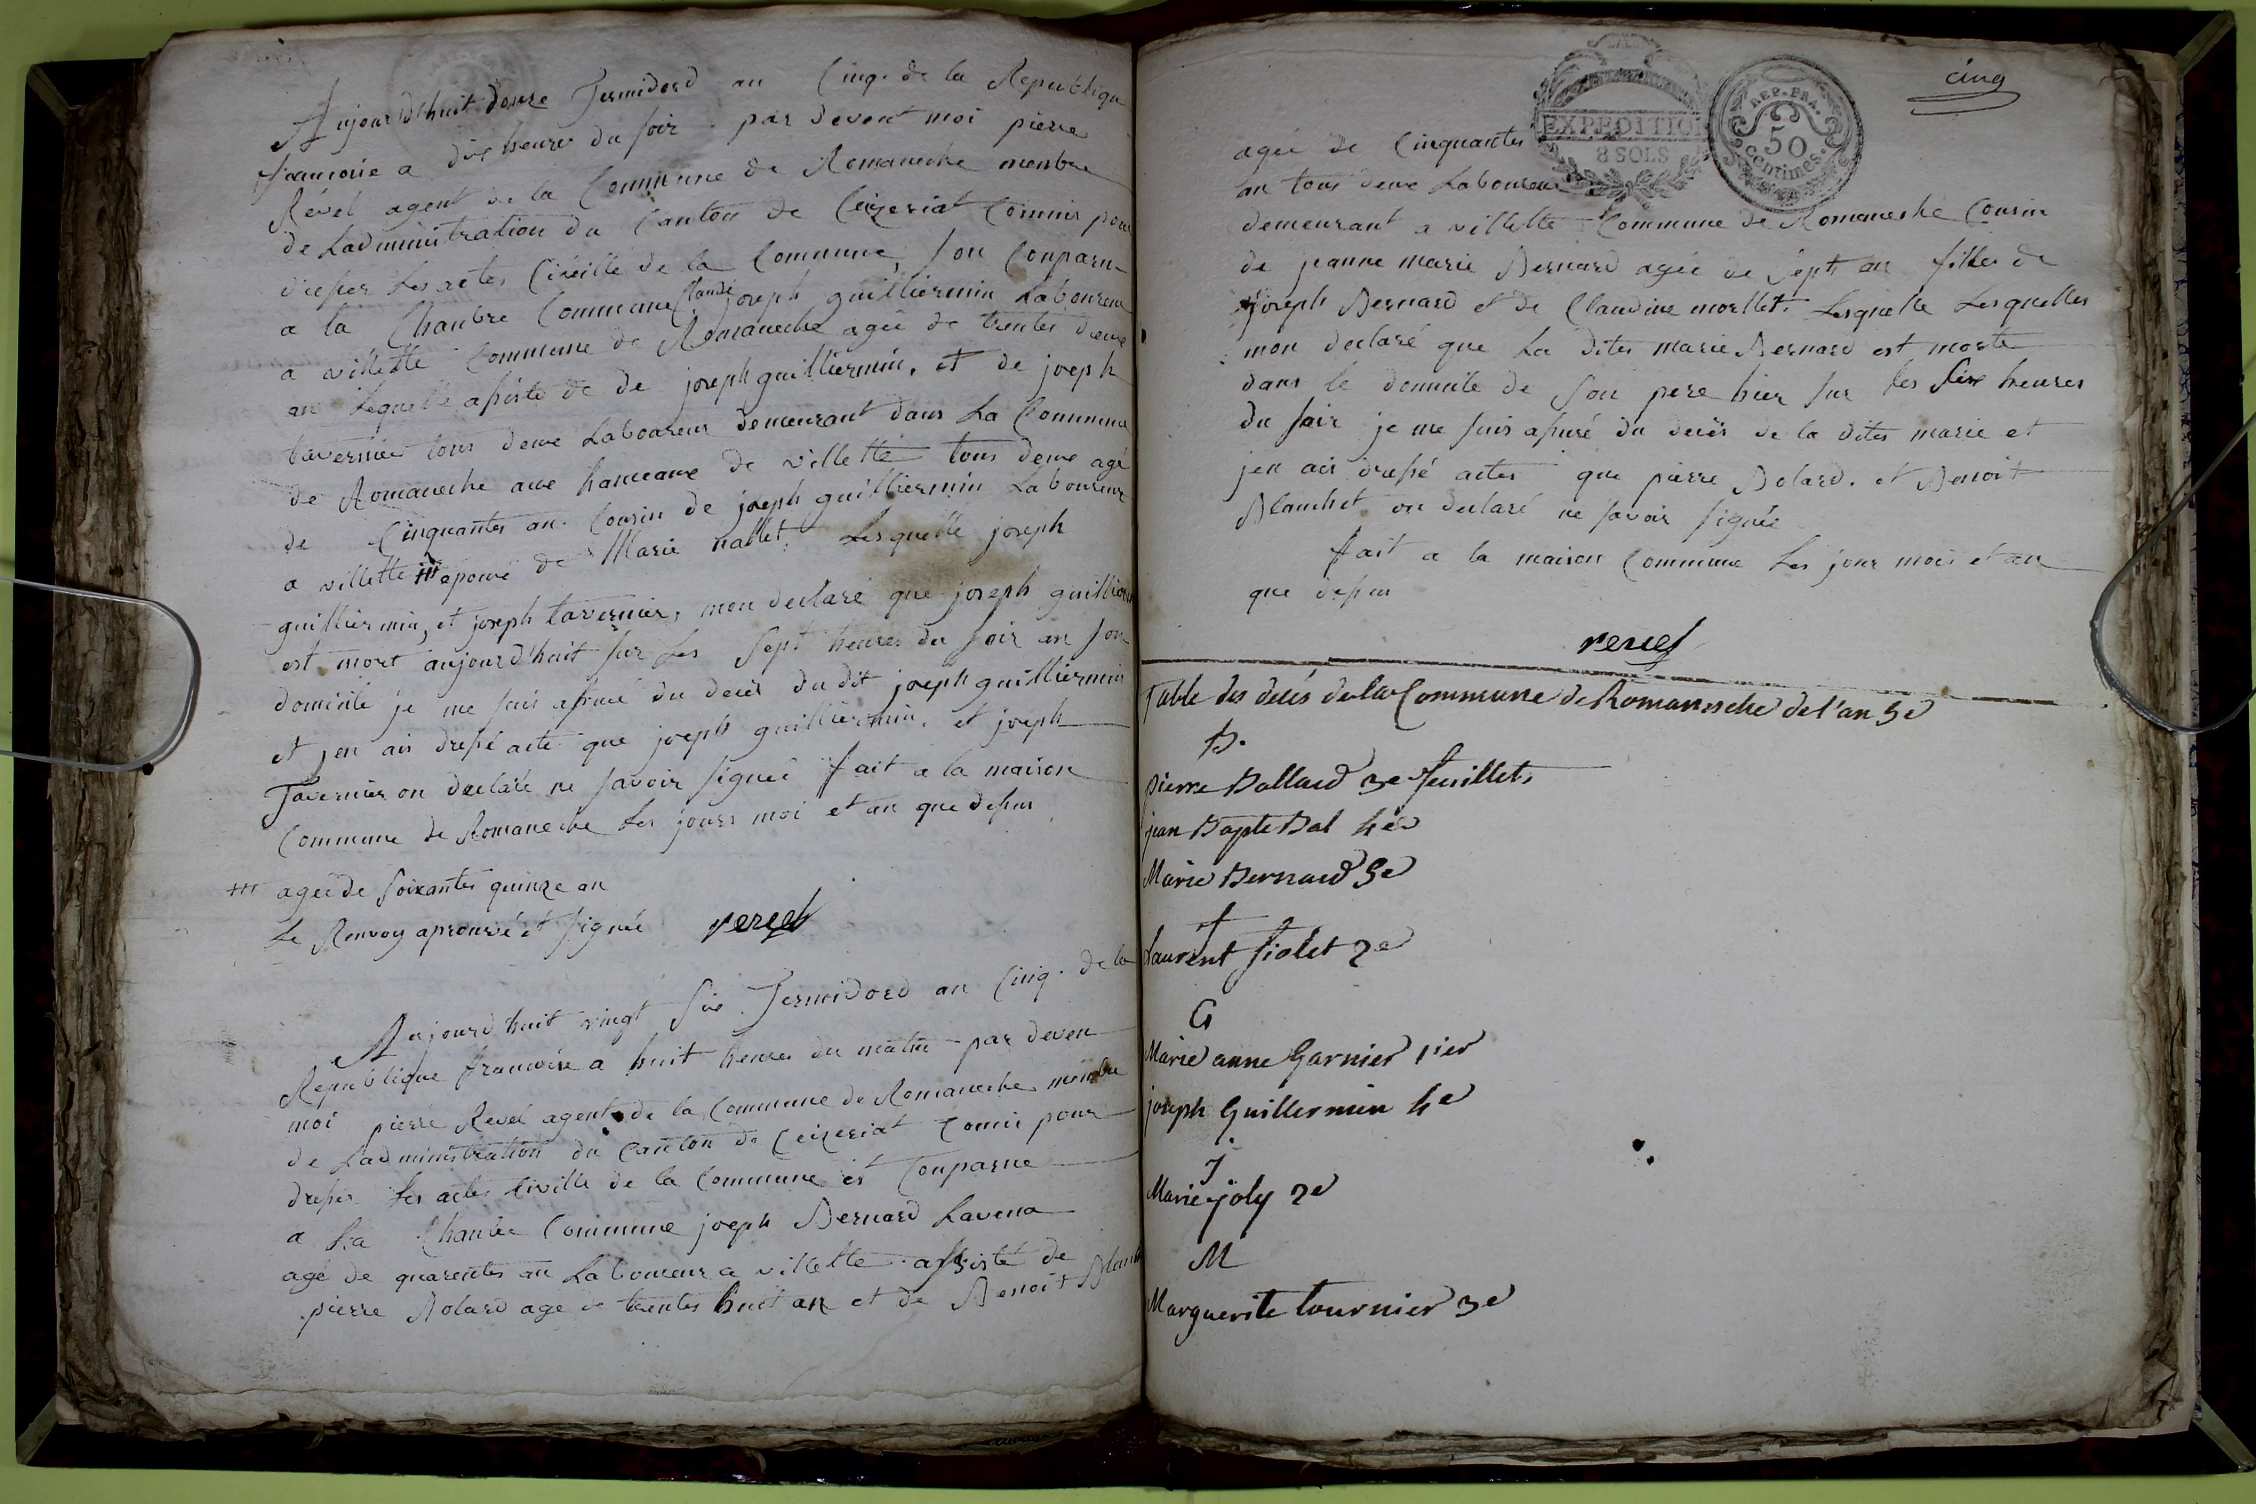 Aujourd'huit douze Termidord an Cinq. de la Republique
francoise a dix heures du soir par devent moi pierre
Revel agent de la Commune de Romaneche menbre
de Ladministration du Canton de Ceizeriat Commis pour
dresser Les actes Civille de la Commune, son Conparu
a la Chanbre Commune Claude joseph guilliermin Laboureur
a villette Commune de Romaneche agée de trentes deux
an Lequelle asisté de de joseph guilliermin, et de joseph
tavernier tous deux Laboureur demeurant dans La Commune
de Romaneche aux hameaux de villette tous deux agé
de Cinquantes an. Cousin de joseph guilliermin Laboureur
a villette +++ epouxe de Marie nallet. Lesquelle joseph
guilliermin, et joseph tavernier, mon declaré que joseph guilliermin
est mort aujourd'huit sur Les Sept heures du soir an son
domicile je me suis assuré du deces du dit joseph guilliermin
et jen ais dressé acte que joseph guilliermin. et joseph
Tavernier on declaré ne savoir signée fait a la maison
Commune de Romaneche Les jours moi et an que dessus
+++ agée de soixantes quinze an
Le Renvoy aprouvé et signée revel
Aujourd'huit vingt six Termidord an Cinq. de la
Republique francoise a huit heures du matin par deven
moi pierre Revel agent de la Commune de Romaneche menbre
de Ladministration du Canton de Ceizeriat Comis pour
dresser Les actes Civille de la Commune est Conparue
a La Chanbre Commune joseph Bernard Lavena
agé de quarentes an Laboureur a villette assisté de
pierre Bolard agé de trentes huit an et de Benoit Blanch
cinq
EXPEDITION
8 SOLS
REP. FRA.
50
centimes.
agée de Cinquantes
an tous deux Laboureur
demeurant a villette Commune de Romaneche Cousin
de jeanne marie Bernard agée de sept an filles de
joseph Bernard et de Claudine morllet. Lesquelle Lesquelles
mon declaré que La dites marie Bernard est morte
dans le domicile de son pere hier sur les six heures
du soir je me suis asuré du decès de la dites marie et
jen ais dressé actes que pierre Bolard. et Benoit
Blanchet on declaré ne savoir signée
fait a la maison Commune Les jour mois et an
que dessus
revel
Table des decés de la Commune de Romanesche de l'an 5e
B.
pierre Bollard 3e feuillets
jean Bapte Bal 4e
Marie Bernard 5e
f
Laurent fiolet 2e
G
Marie anne Garnier 1ier
joseph Guillermin 4e
J
Marie joly 2e
M
Marguerite tournier 3e